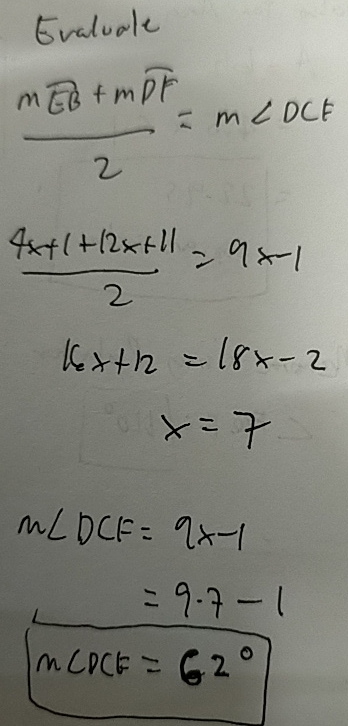 Evaluate
mEB + mDF
2
= m∠DCF
4x+1+12x+11
2
= 9x-1
16x+12 = 18x-2
x = 7
m∠DCF = 9x-1
= 9·7-1
m∠DCF = 62°